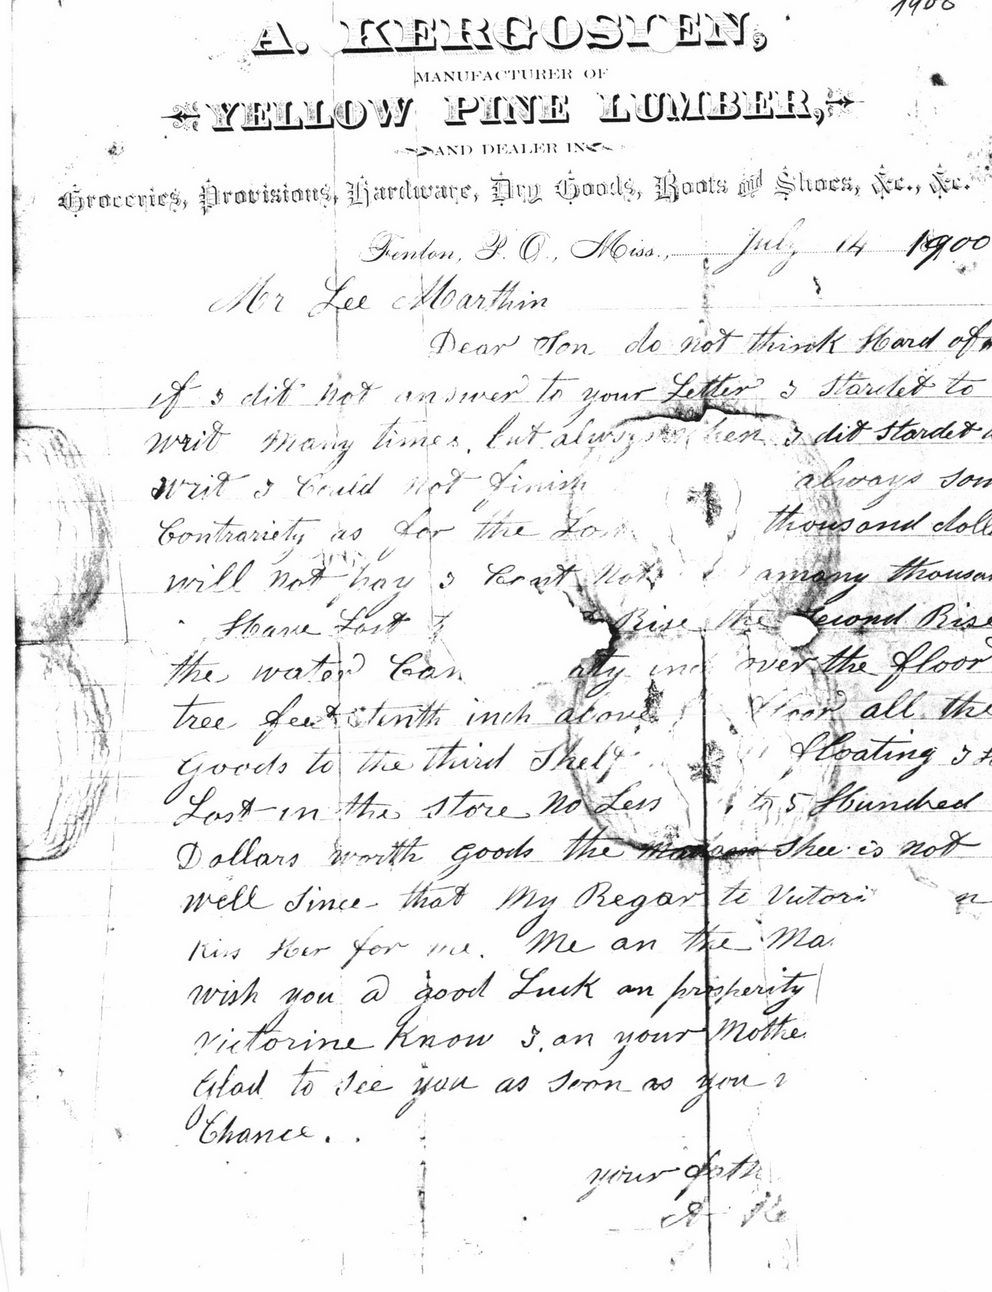 1900
A. KERGOSIEN,
MANUFACTURER OF
YELLOW PINE LUMBER,
AND DEALER IN
Groceries, Provisions, Hardware, Dry Goods, Boots and Shoes, &c., &c.
Fenton, P. O., Miss., July 14 1900
Mr Lee Marthin
Dear Son do not think Hard of
if I dit not answer to your Letter I Stardet to
writ many times, but always when I dit Stardet
writ I Could not finish always som
Contrariety as for the thousand doll
will not pay I Cant not among thousan
Have Lost Rise the second Rise
the water Cam over the floor
tree feet tenth inch above floor all the
Goods to the third Shelf floating I
Lost in the store no Less to 5 Hundred
Dollars worth goods the madam Shee is not
well Since that My Regar to Victori
Kiss Her for me. Me an the Ma
wish you a good Luck an prosperity
Victorine Know I an your Mothe
Glad to see you as soon as you
Chance..
your fath
A Ke